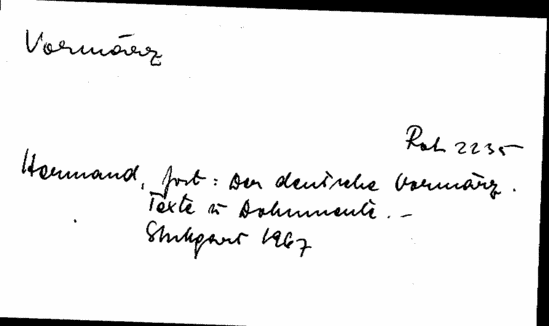 Vormärz
Rah 2235
Hermand, Jost: Der deutsche Vormärz.
Texte u Dokumente. –
Stuttgart 1967